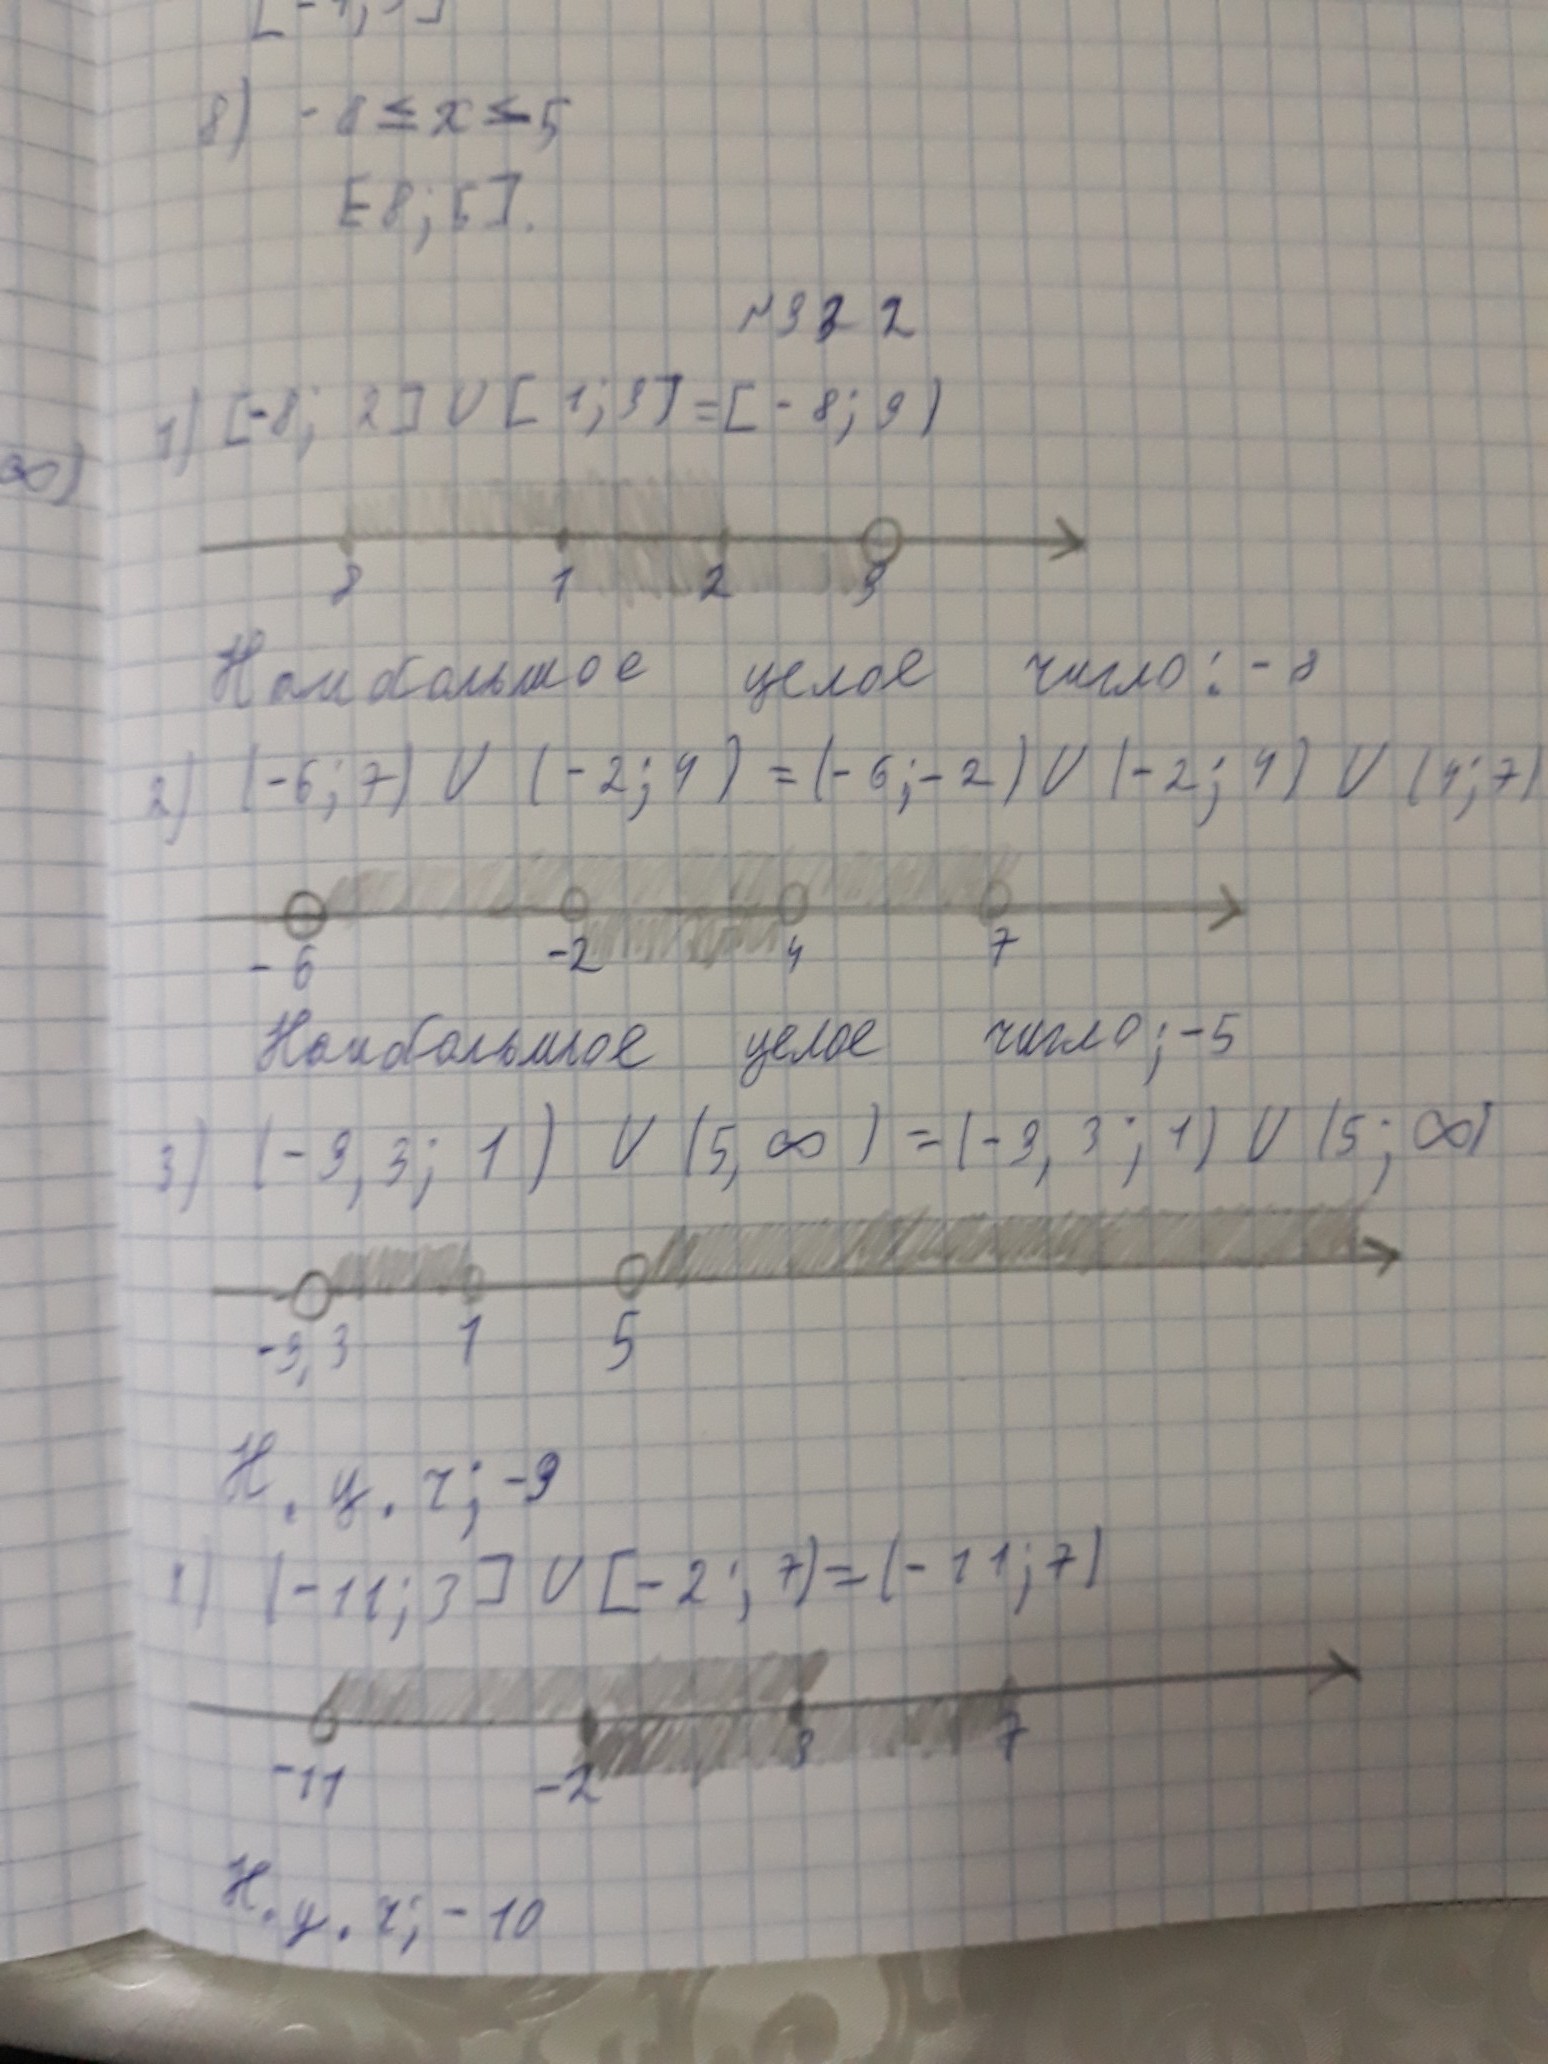 8) -8 ≤ x ≤ 5
[-8; 5].
№ 9 3 2
1) [-8; 2] U [1; 9] = [-8; 9)
8 1 2 9
Наибольшое целое число: -8
2) (-6; 7) U (-2; 4) = (-6; -2) U (-2; 4) U (4; 7)
-6 -2 4 7
Наибольшое целое число; -5
3) (-9,3; 1) U (5, ∞) = (-9,3; 1) U (5; ∞)
-9,3 1 5
Н. ц. ч; -9
(-11; 3] U [-2; 7) = (-11; 7)
-11 -2 3 7
Н. ц. ч; -10